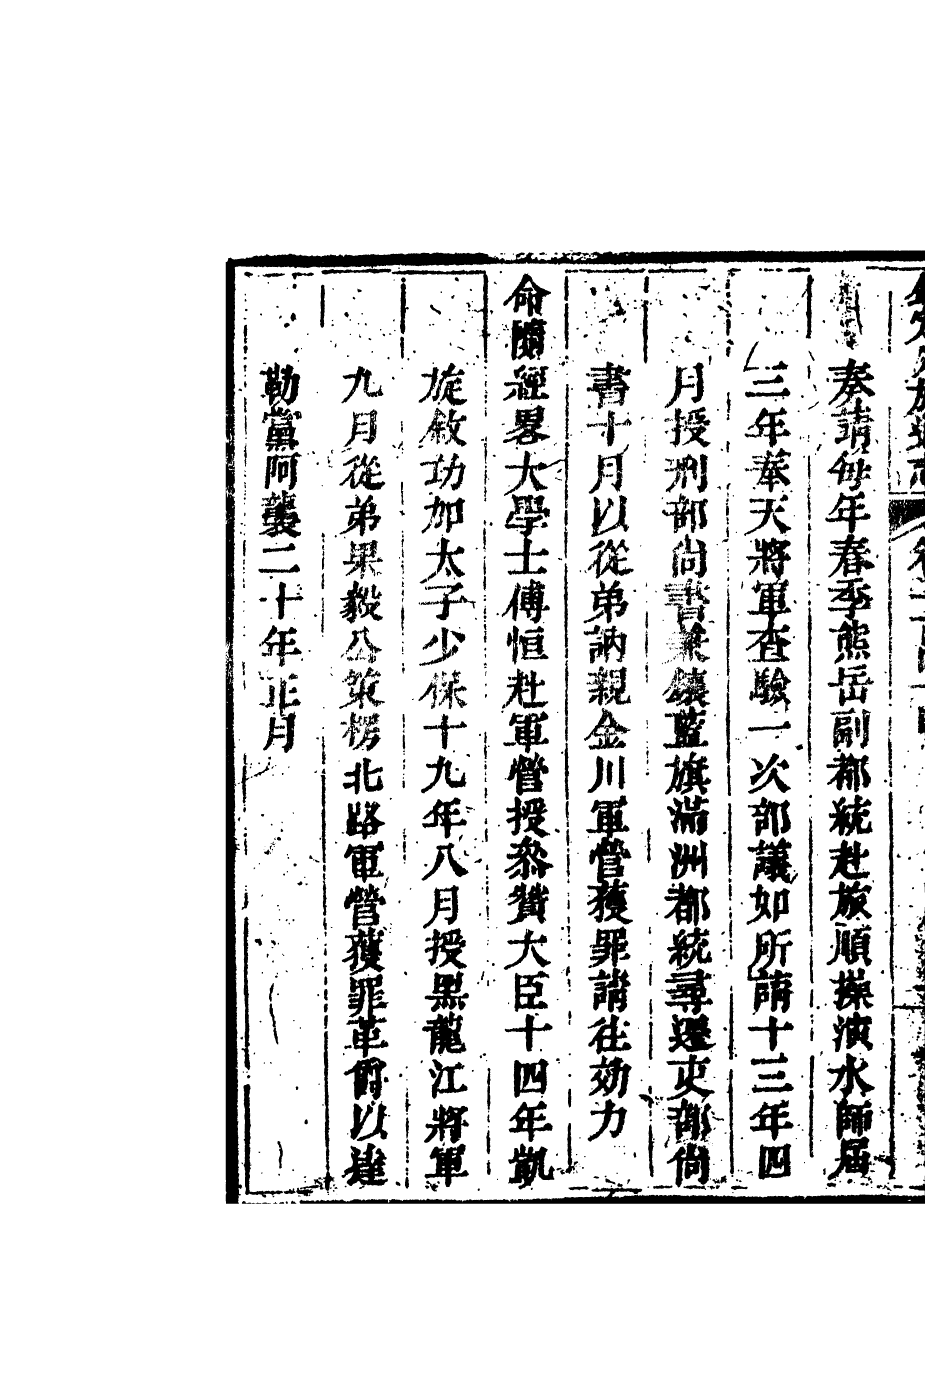 奏請每年春季熊岳副都統赴旅順操演水師屆
三年奉天將軍查驗一次部議如所請十三年四
月授刑部尚書兼鑲藍旗滿洲都統尋遷吏部尚
書十月以從弟訥親金川軍營獲罪請往効力
命隨經畧大學士傅恒赴軍營授叅贊大臣十四年凱
旋敘功加太子少保十九年八月授黑龍江將軍
九月從弟果毅公策楞北路軍營獲罪革爵以達
勒黨阿襲二十年正月